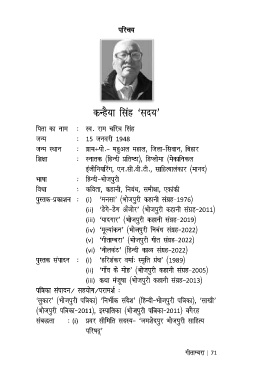 परिचय
कन्हैया सिंह ‘सदय’
पिता का नाम : स्व. राम चरित्र सिंह
जन्म : 15 जनवरी 1948
जन्म स्थान : ग्राम+पो.- महुअल महाल, जिला-सिवान, बिहार
शिक्षा : स्नातक (हिन्दी प्रतिष्ठा), डिप्लोमा (मेकानिकल
इंजीनियरिंग), एन.सी.वी.टी., साहित्यालंकार (मानद)
भाषा : हिन्दी-भोजपुरी
विधा : कविता, कहानी, निबंध, समीक्षा, एकांकी
पुस्तक-प्रकाशन : (i) ‘मनसा’ (भोजपुरी कहानी संग्रह-1976)
(ii) ‘डेगे-डेग अँजोर’ (भोजपुरी कहानी संग्रह-2011)
(iii) ‘यादगार’ (भोजपुरी कहानी संग्रह-2019)
(iv) ‘मूल्यांकन’ (भोजपुरी निबंध संग्रह-2022)
(v) ‘गीताम्बरा’ (भोजपुरी गीत संग्रह-2022)
(vi) ‘नीलकंठ’ (हिन्दी काव्य संग्रह-2022)
पुस्तक संपादन : (i) ‘हरिशंकर वर्मा: स्मृति ग्रंथ’ (1989)
(ii) ‘गाँव के मोड़’ (भोजपुरी कहानी संग्रह-2005)
(iii) कथा मंजूषा (भोजपुरी कहानी संग्रह-2013)
पत्रिका संपादन/ सहयोग/परामर्श :
‘लुकार’ (भोजपुरी पत्रिका) ‘निर्भीक संदेश’ (हिन्दी-भोजपुरी पत्रिका), ‘साखी’
(भोजपुरी पत्रिका-2011), इस्पातिका (भोजपुरी पत्रिका-2011) वगैरह
संबद्धता : (i) प्रवर समिति सदस्य- ‘जमशेदपुर भोजपुरी साहित्य
परिषद्’
गीताम्बरा | 71